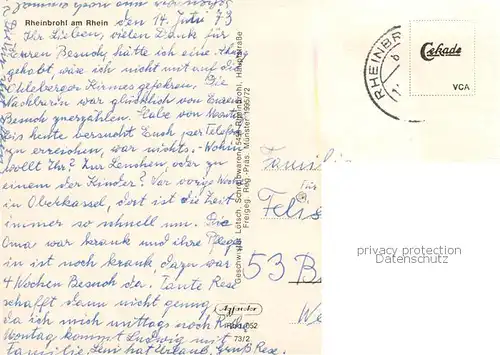 Rheinbrohl am Rhein
den 14. Juli 73
Ihr Lieben, vielen Dank für
Euren Besuch, hätte ich eine Ahnung
gehabt, wäre ich nicht mit auf die
Ohleberger Kirmes gefahren. Die
Nachbarin war glücklich von Eurem
Besuch zu erzählen. Habe von
bis heute versucht Euch per Telefon
zu erreichen, war nichts. Wohin
wollt Ihr? Zur Lenchen, oder zu
einem der Kinder? War vorige Woche
in Oberkassel, dort ist die Zeit
immer so schnell um. Die
Oma war krank und ihre Pflege
in ist noch krank, dazu war
4 Wochen Besuch da. Tante Rese
schafft dann nicht genug,
da ich mich mittags noch
Montag kommt Ludwig mit
Familie. Leni hat Urlaub. Gruß Rese.
Geschwister Lötsch, Schreibwaren, 5456 Rheinbrohl, Hauptstraße
Freigeg. Reg.-Präs. Münster 1995/72
RHEINBR
Cekade
VCA
Familie
Felis
53 B
We
privacy protection
Datenschutz
73/2